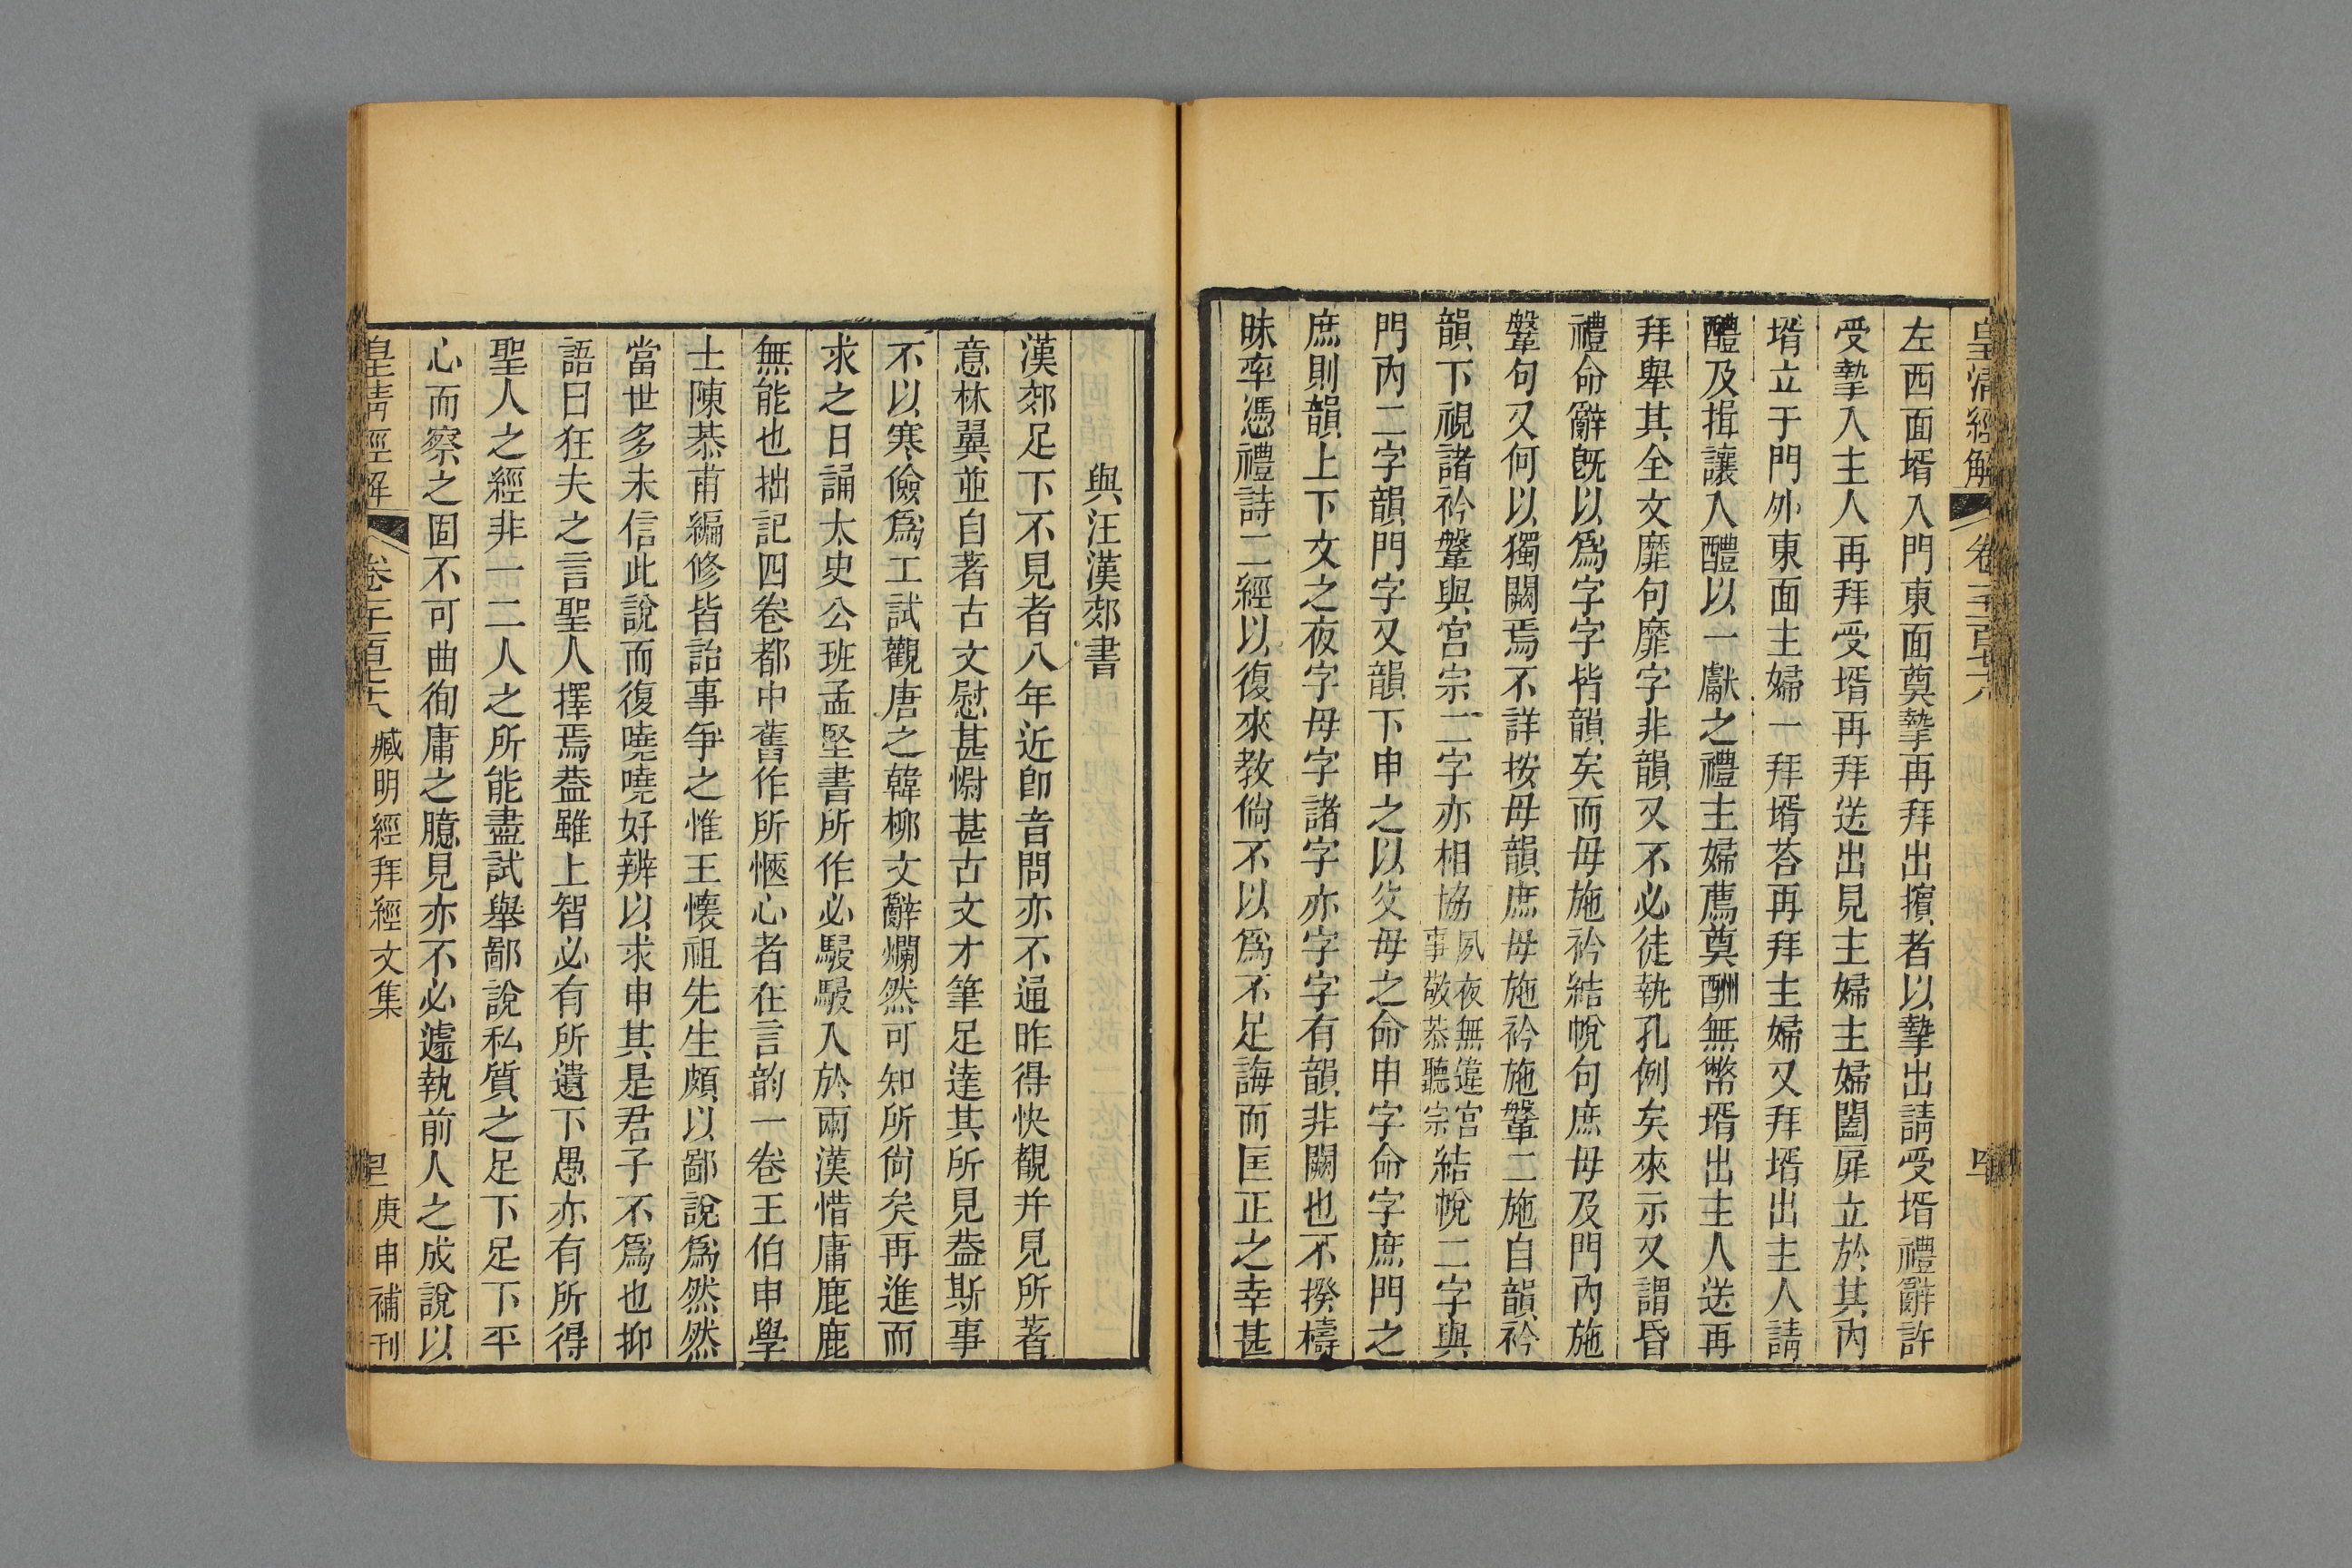 皇清經解
左西面壻入門東面奠摯再拜出擯者以摯出請受壻禮辭許
受摯入主人再拜受壻再拜送出見主婦主婦闔扉立於其內
壻立于門外東面主婦一拜壻荅再拜主婦又拜壻出主人請
醴及揖讓入醴以一獻之禮主婦薦奠酬無幣壻出主人送再
拜舉其全文靡句靡字非韻又不必徒執孔例矣來示又謂昏
禮命辭旣以爲字字皆韻矣而母施衿結帨句庶母及門內施
鞶句又何以獨闕焉不詳按母韻庶母施衿施鞶二施自韻衿
韻下視諸衿鞶與宫宗二字亦相協夙夜無違宫事敬恭聽宗結帨二字與
門內二字韻門字又韻下申之以父母之命申字命字庶門之
庶則韻上下文之夜字母字諸字亦字字有韻非闕也不揆檮
昧率憑禮詩二經以復來教倘不以爲不足誨而匡正之幸甚
與汪漢郊書
漢郊足下不見者八年近卽音問亦不通昨得快覩并見所著
意林翼並自著古文慰甚慰甚古文才筆足達其所見葢斯事
不以寒儉爲工試觀唐之韓柳文辭爛然可知所尙矣再進而
求之日誦太史公班孟堅書所作必駸駸入於兩漢惜庸鹿鹿
無能也拙記四卷都中舊作所愜心者在言韵一卷王伯申學
士陳恭甫編修皆詒事爭之惟王懷祖先生頗以鄙說爲然然
當世多未信此說而復嘵嘵好辨以求申其是君子不爲也抑
語曰狂夫之言聖人擇焉葢雖上智必有所遺下愚亦有所得
聖人之經非一二人之所能盡試舉鄙說私質之足下足下平
心而察之固不可曲徇庸之臆見亦不必遽執前人之成說以
皇清經解
臧明經拜經文集
庚申補刊